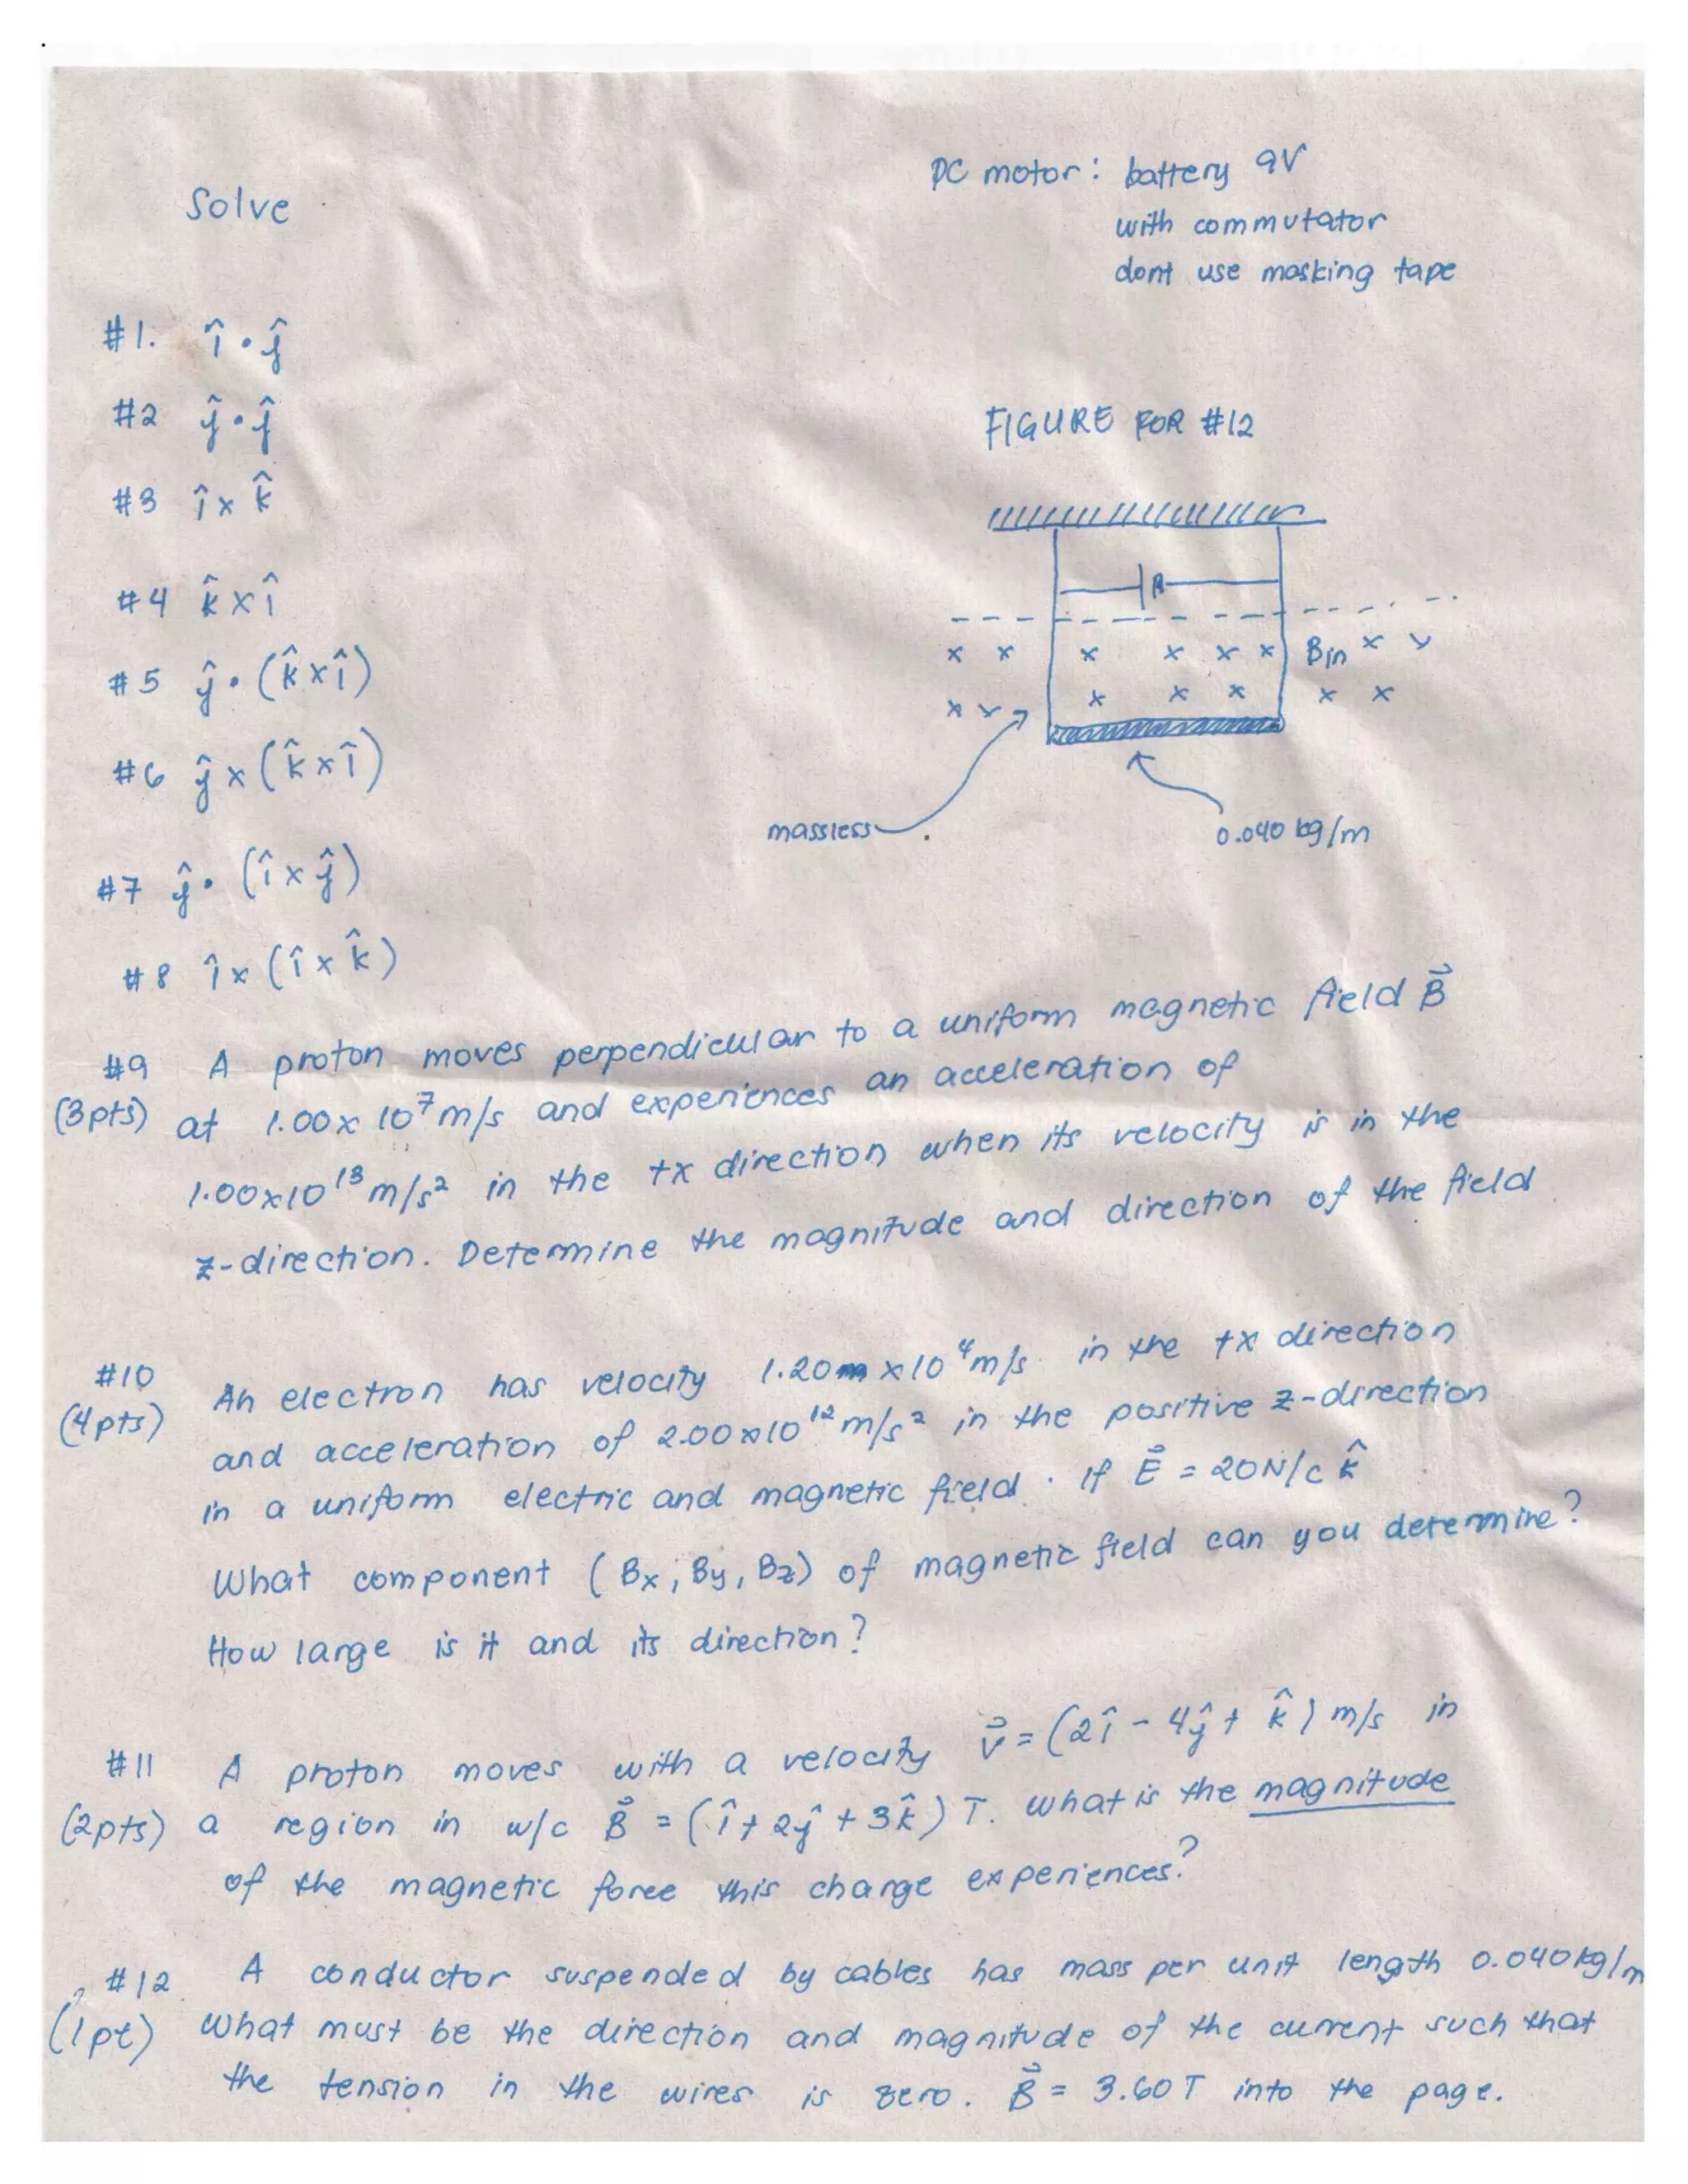 Solve
DC motor: battery 9V
with commutator
dont use masking tape
#1. î · ĵ
#2 ĵ · ĵ
#3 î x k̂
#4 k̂ x î
#5 ĵ · (k̂ x î)
#6 ĵ x (k̂ x î)
#7 ĵ · (î x ĵ)
#8 î x (î x k̂)
FIGURE FOR #12
x x x x x x Bin x x
x x x x x x x
massless
0.040 kg/m
#9 A proton moves perpendicular to a uniform magnetic field B⃗
(3pts) at 1.00 x 10⁷ m/s and experiences an acceleration of
1.00x10¹³ m/s² in the +x direction when its velocity is in the
z-direction. Determine the magnitude and direction of the field
#10 An electron has velocity 1.20 x 10⁴ m/s in the +x direction
(4pts) and acceleration of 2.00x10¹² m/s² in the positive z-direction
in a uniform electric and magnetic field. If E⃗ = 20N/C k̂
What component (Bx, By, Bz) of magnetic field can you determine?
How large is it and its direction?
#11 A proton moves with a velocity v⃗ = (2î - 4ĵ + k̂) m/s in
(2pts) a region in w/c B⃗ = (î + 2ĵ + 3k̂) T. What is the magnitude
of the magnetic force this charge experiences?
#12 A conductor suspended by cables has mass per unit length 0.040 kg/m
(1pt) What must be the direction and magnitude of the current such that
the tension in the wires is zero. B⃗ = 3.60 T into the page.